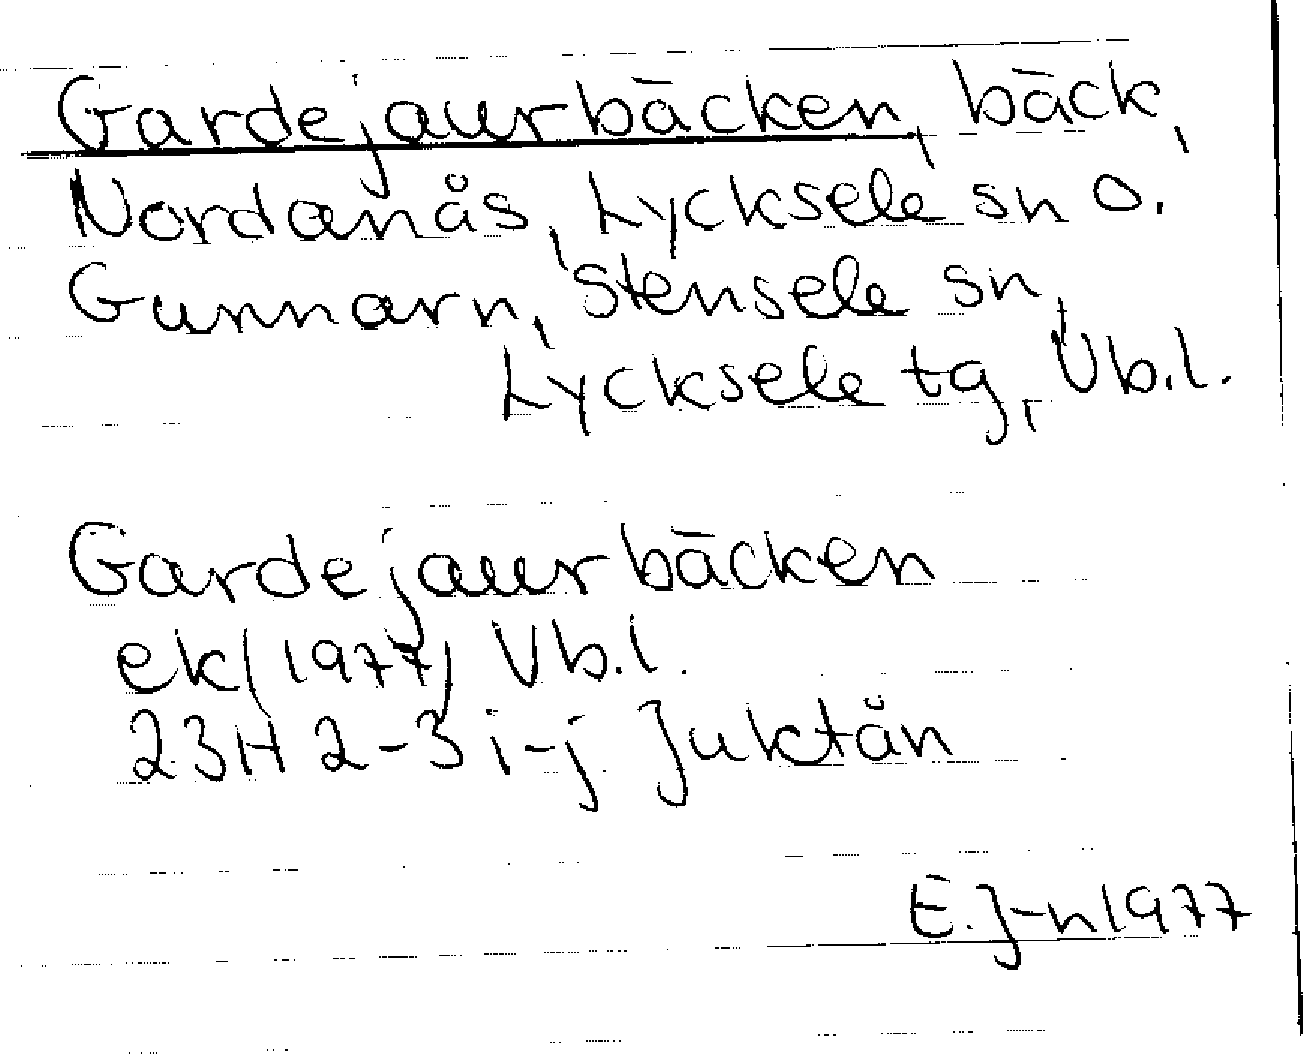 Gardejaurbäcken, bäck,
Nordanås, Lycksele sn o.
Gunnarn, Stensele sn,
Lycksele tg, Vb.l.
Gardejaurbäcken
ek(1977) Vb.l.
23H 2-3 i-j Juktån
E.J-n 1977